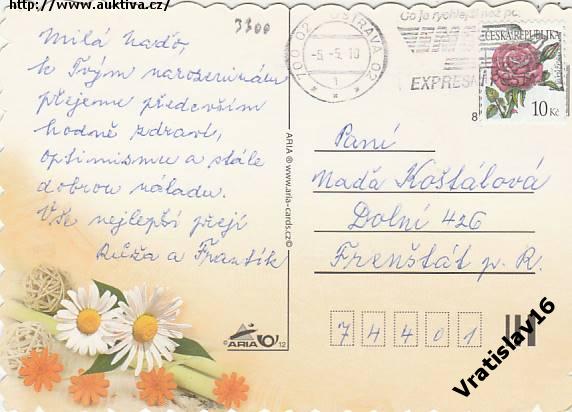 http://www.auktiva.cz/
3300
Milá Naďo,
k Tvým narozeninám
přejeme především
hodně zdraví,
optimismu a stále
dobrou náladu.
Vše nejlepší přejí
Růža a Frantík
ARIA ® www.aria-cards.cz ©
OSTRAVA 02
700 02
-5.-5.10
1
Co je rychlejší než
EMS
EXPRES
ČESKÁ REPUBLIKA
10 Kč
8
Paní
Naďa Košťálová
Dolní 426
Frenštát p. R.
7 4 4 0 1
©ARIA
12
Vratislav16